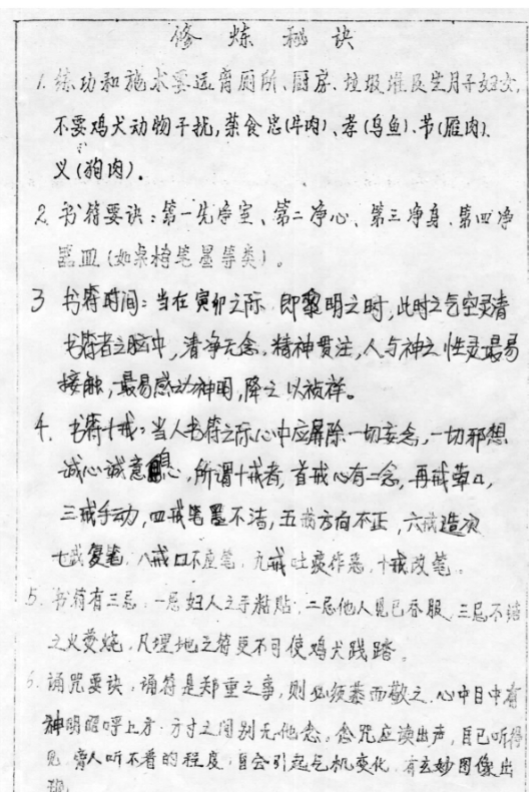 修炼秘诀
1. 练功和施术要远离厕所、厨房、垃圾堆及坐月子妇女,
不要鸡犬动物干扰,禁食忠(牛肉)、孝(乌鱼)、节(雁肉)、
义(狗肉)。
2. 书符要诀:第一先净室、第二净心、第三净身、第四净
器皿(如桌椅笔墨等类)。
3 书符时间:当在寅卯之际 即黎明之时,此时之气空灵清
书符者之脑中,清净无念,精神贯注,人与神之性灵最易
接触,最易感动神明,降之以祯祥。
4. 书符十戒:当人书符之际心中应屏除一切妄念,一切邪想
诚心诚意 ,所谓十戒者,首戒心有二念,再戒荤口,
三戒手动,四戒笔墨不洁,五戒方向不正,六戒
七戒复笔,八戒口不应笔,九戒吐痰作恶,十戒改笔。
5. 书符有三忌,一忌妇人之手粘贴,二忌他人见已吞服,三忌不洁
之火焚烧,凡埋地之符更不可使鸡犬践踏。
6. 诵咒要诀,诵符是郑重之事,则必须恭而敬之,心中目中有
神明 呼上方,方寸之间别无他念,念咒应读出声,自已听得
见,旁人听不着的程度,自会引起气机变化,有玄妙图像出
现